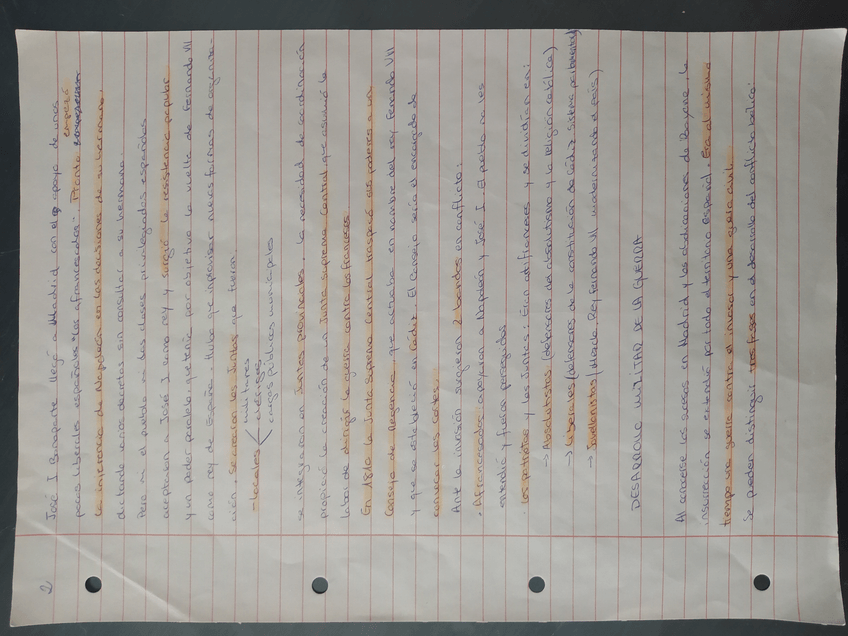 2
José I Bonaparte llegó a Madrid con el apoyo de unos
pocos liberales españoles "los afrancesados". Pronto empezó
la injerencia de Napoleón en las decisiones de su hermano,
dictando varios decretos sin consultar a su hermano.
Pero ni el pueblo ni las clases privilegiadas españolas
aceptaron a José I como rey y surgió la resistencia popular
y un poder paralelo que tenía por objetivo la vuelta de Fernando VII
como rey de España. Hubo que improvisar nuevas formas de organiza-
ción. Se crearon las Juntas que fueron:
- Locales
militares
clérigos
cargos públicos municipales
se integraron en Juntas provinciales. La necesidad de coordinación
propició la creación de una Junta Suprema Central que asumió la
labor de dirigir la guerra contra los franceses.
En 1810 la Junta Suprema Central traspasó sus poderes a un
Consejo de Regencia que actuaba en nombre del rey Fernando VII
y que se estableció en Cádiz. El Consejo sería el encargado de
convocar las cortes.
Ante la invasión surgieron 2 bandos en conflicto:
· Afrancesados: apoyaron a Napoleón y José I. El pueblo no les
entendió y fueron perseguidos.
· Los patriotas y las Juntas: Eran antifranceses y se dividían en:
→ Absolutistas (defensores de absolutismo y la religión católica)
→ Liberales (defensores de la constitución de Cádiz
→ Jovellanistas Rey Fernando VII modernizando el país)
DESARROLLO MILITAR DE LA GUERRA
Al conocerse los sucesos en Madrid y las abdicaciones de Bayona, la
insurrección se extendió por todo el territorio español. Era al mismo
tiempo una guerra contra el invasor y una guerra civil.
Se pueden distinguir tres fases en el desarrollo del conflicto bélico: